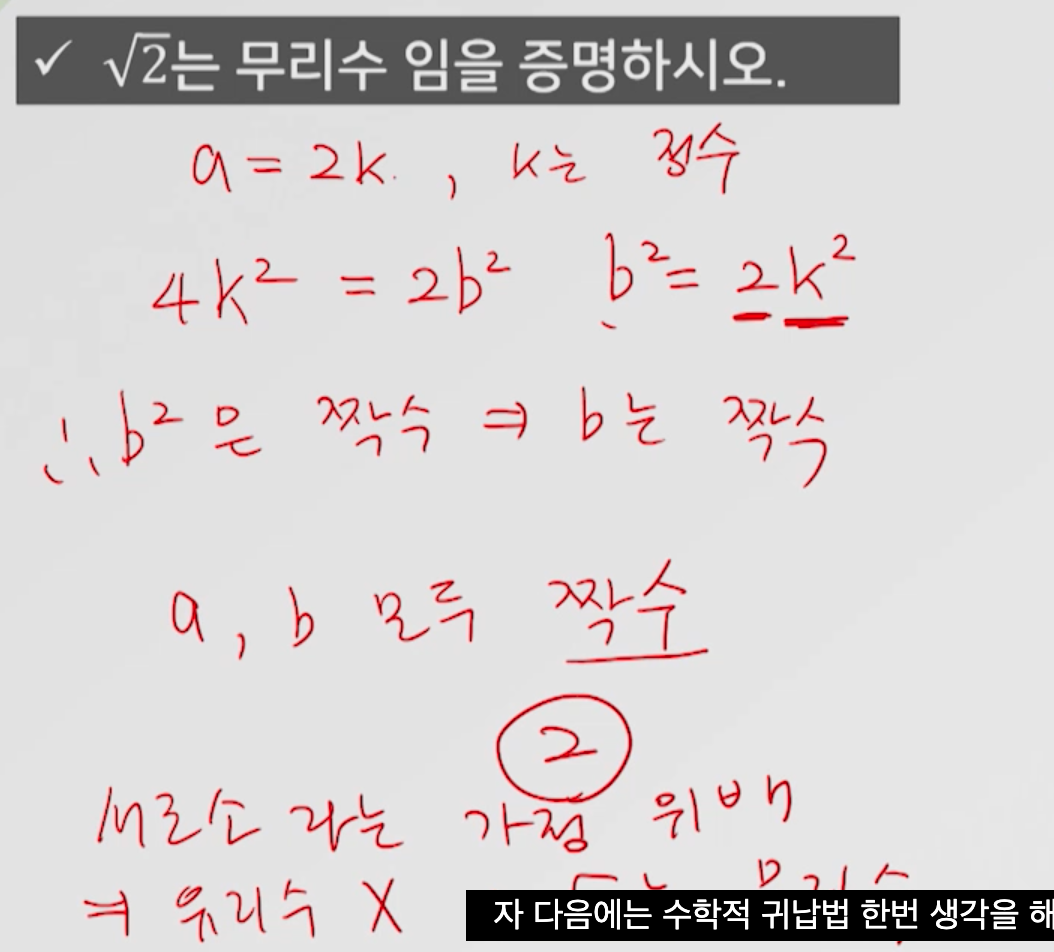 ✓ √2는 무리수 임을 증명하시오.
a = 2k , k는 정수
4k² = 2b² b² = 2k²
∴ b² 은 짝수 ⇒ b는 짝수
a, b 모두 짝수
2
서로소 라는 가정 위배
⇒ 유리수 X
자 다음에는 수학적 귀납법 한번 생각을 해